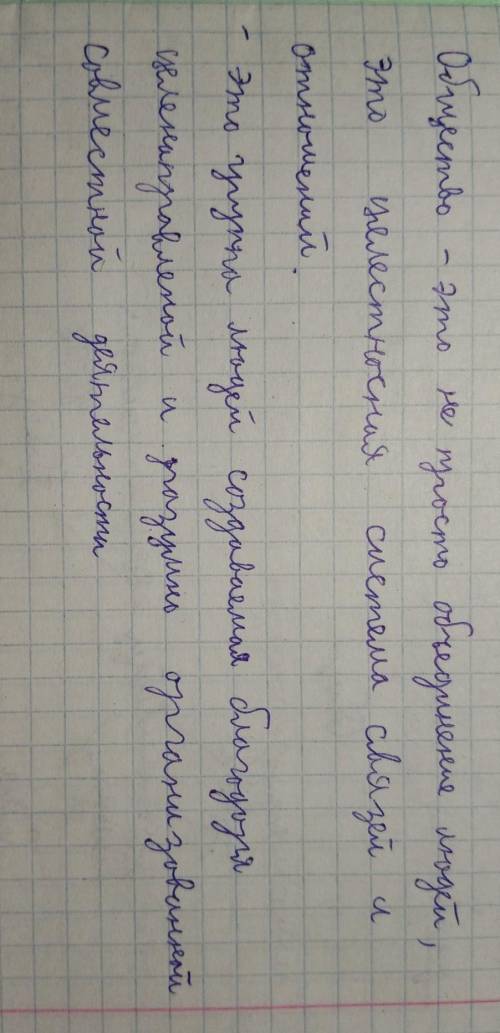 Общество - это не просто объединение людей,
это целестносная система связей и
отношений.
- это группа людей создаваемая благодоря
целенаправленой и разумно организованной
совместной деятельности